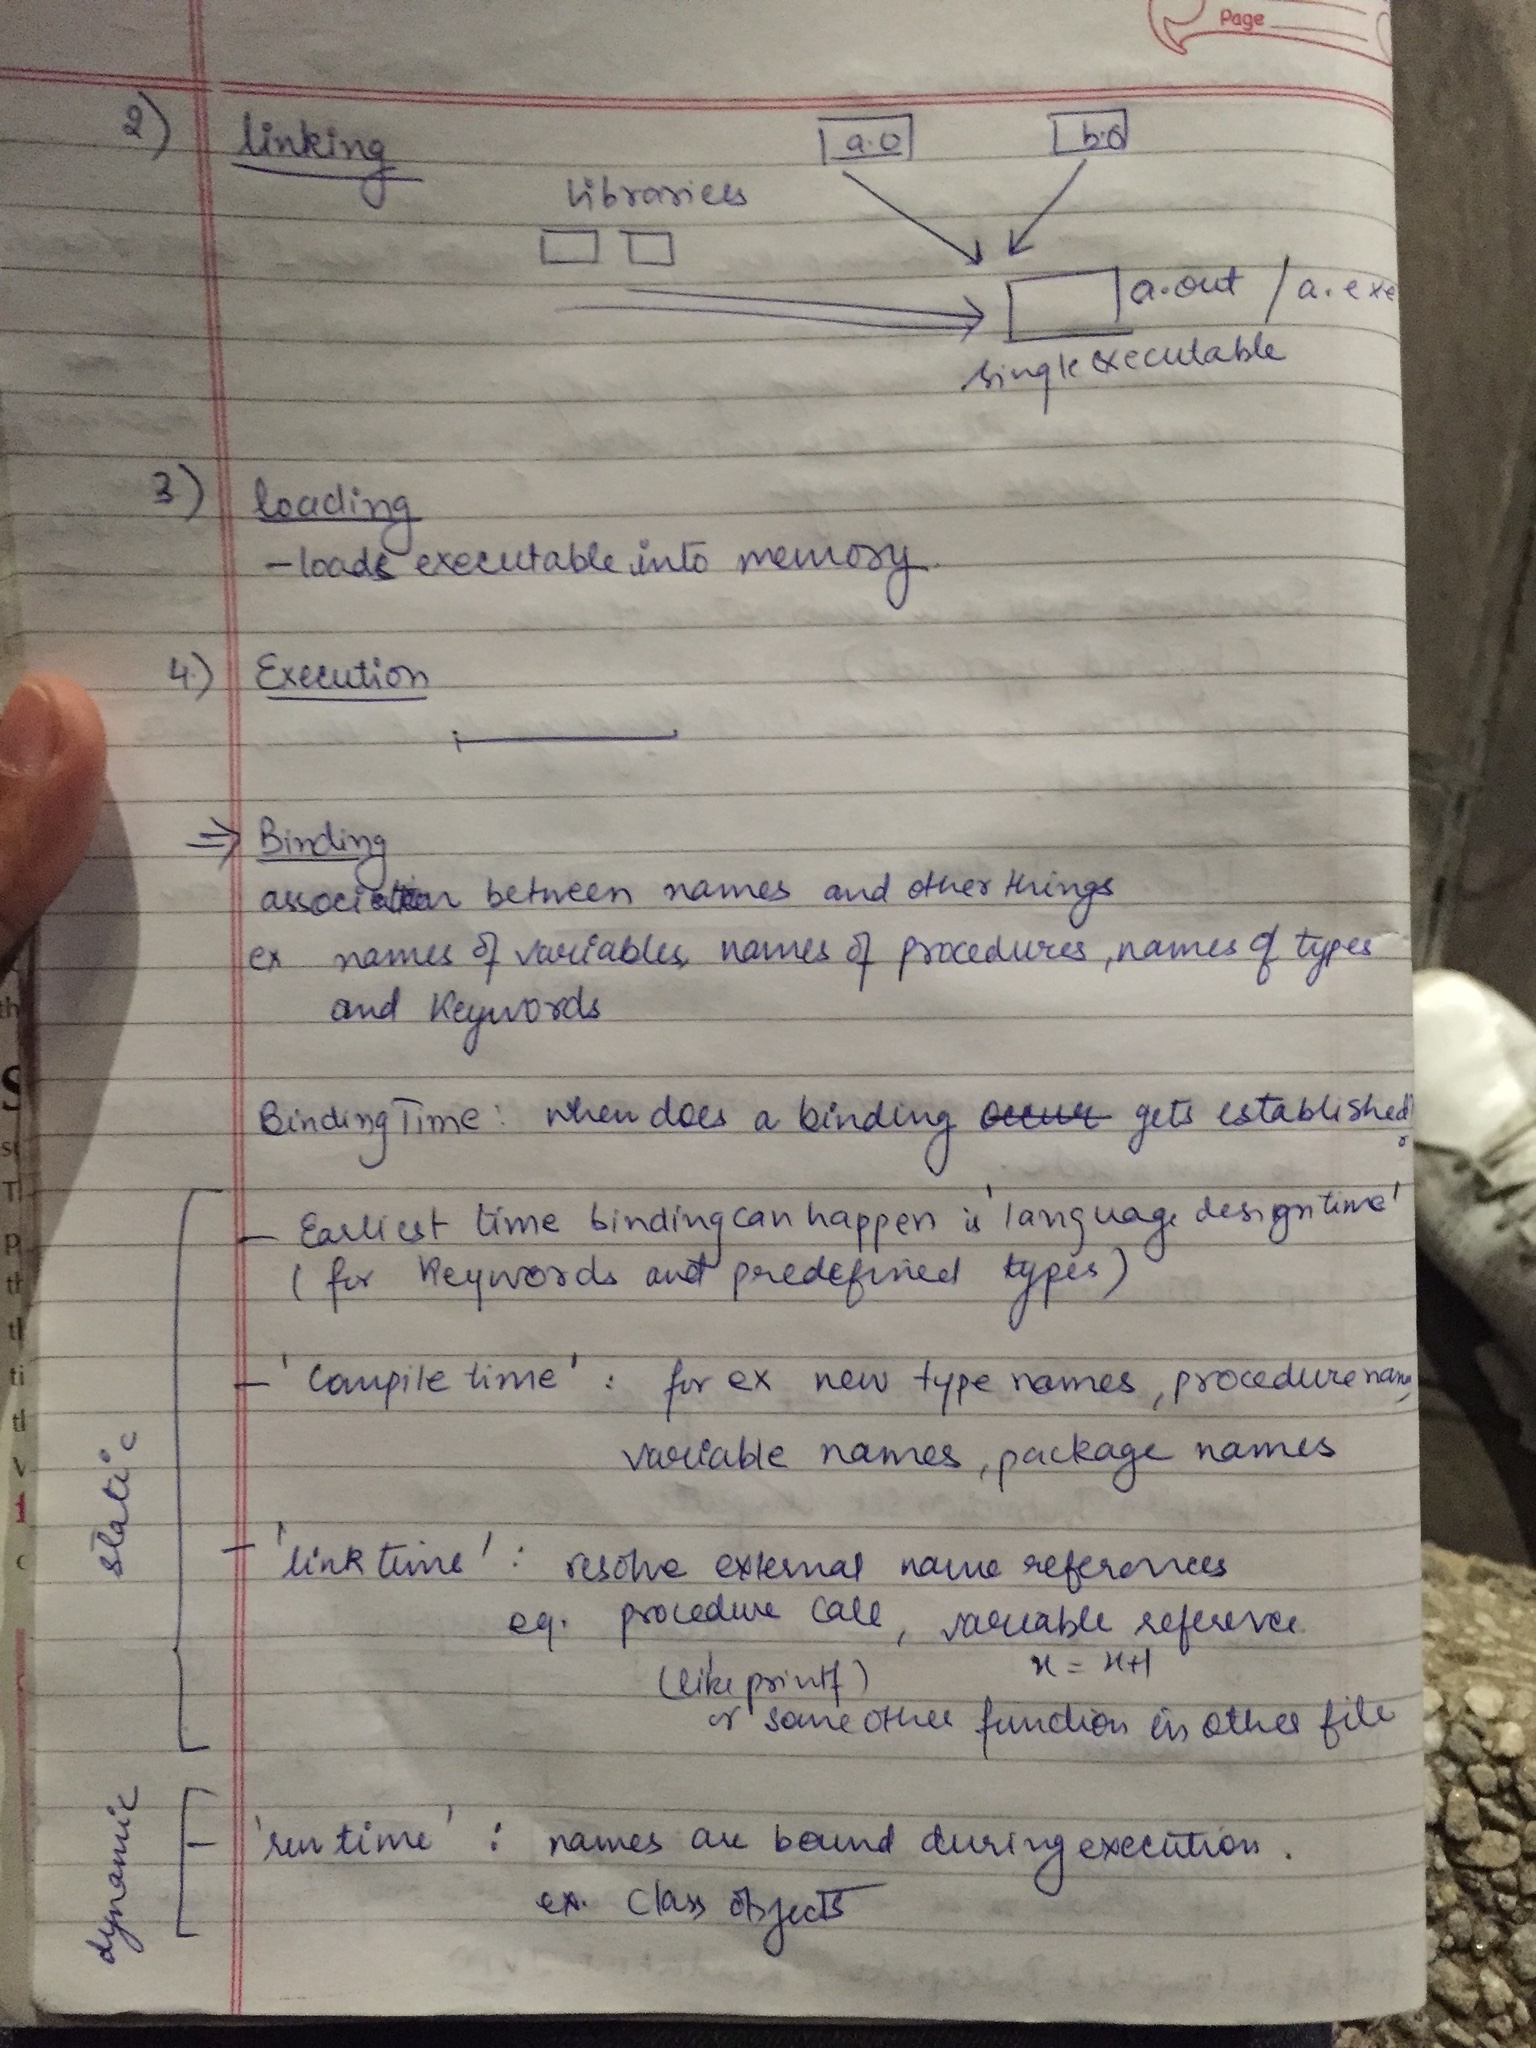 Page
2) linking
a.o b.o
libraries
a.out / a.exe
single executable
3) loading
- loads executable into memory.
4.) Execution
⇒ Binding
association between names and other things
ex names of variables, names of procedures, names of types
and keywords
Binding Time: when does a binding occur gets established?
- Earliest time binding can happen is 'language design time'
(for keywords and predefined types)
- 'compile time' : for ex new type names, procedure name,
variable names, package names
static
- 'link time' : resolve external name references
eg. procedure call, variable reference
(like printf) x = x+1
or some other function in other file
dynamic
- 'run time' : names are bound during execution.
ex. class objects